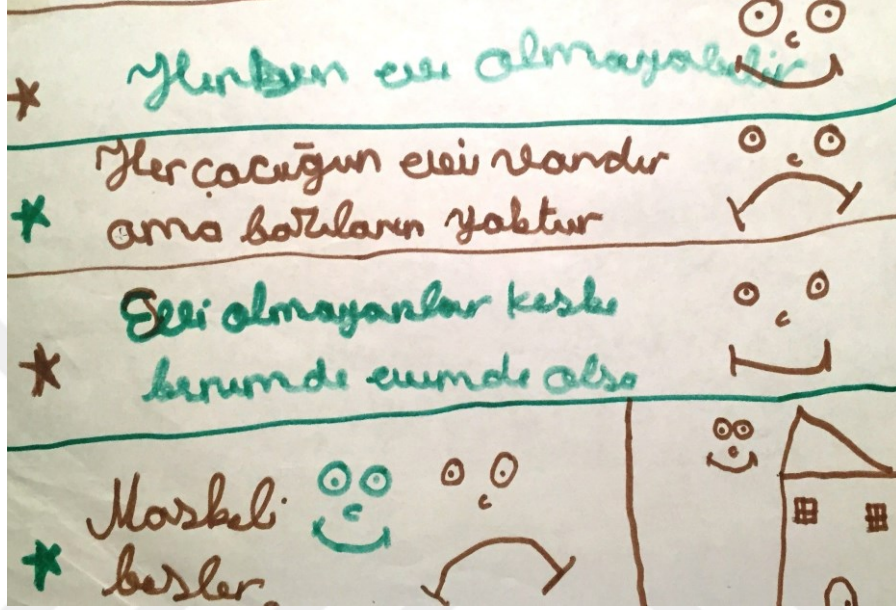 Herksen evi olmayabilir
Her çocuğun evi vardır
ama bazıların yoktur
Evi olmayanlar keşke
benimde evimde olsa
Maskeli
beşler